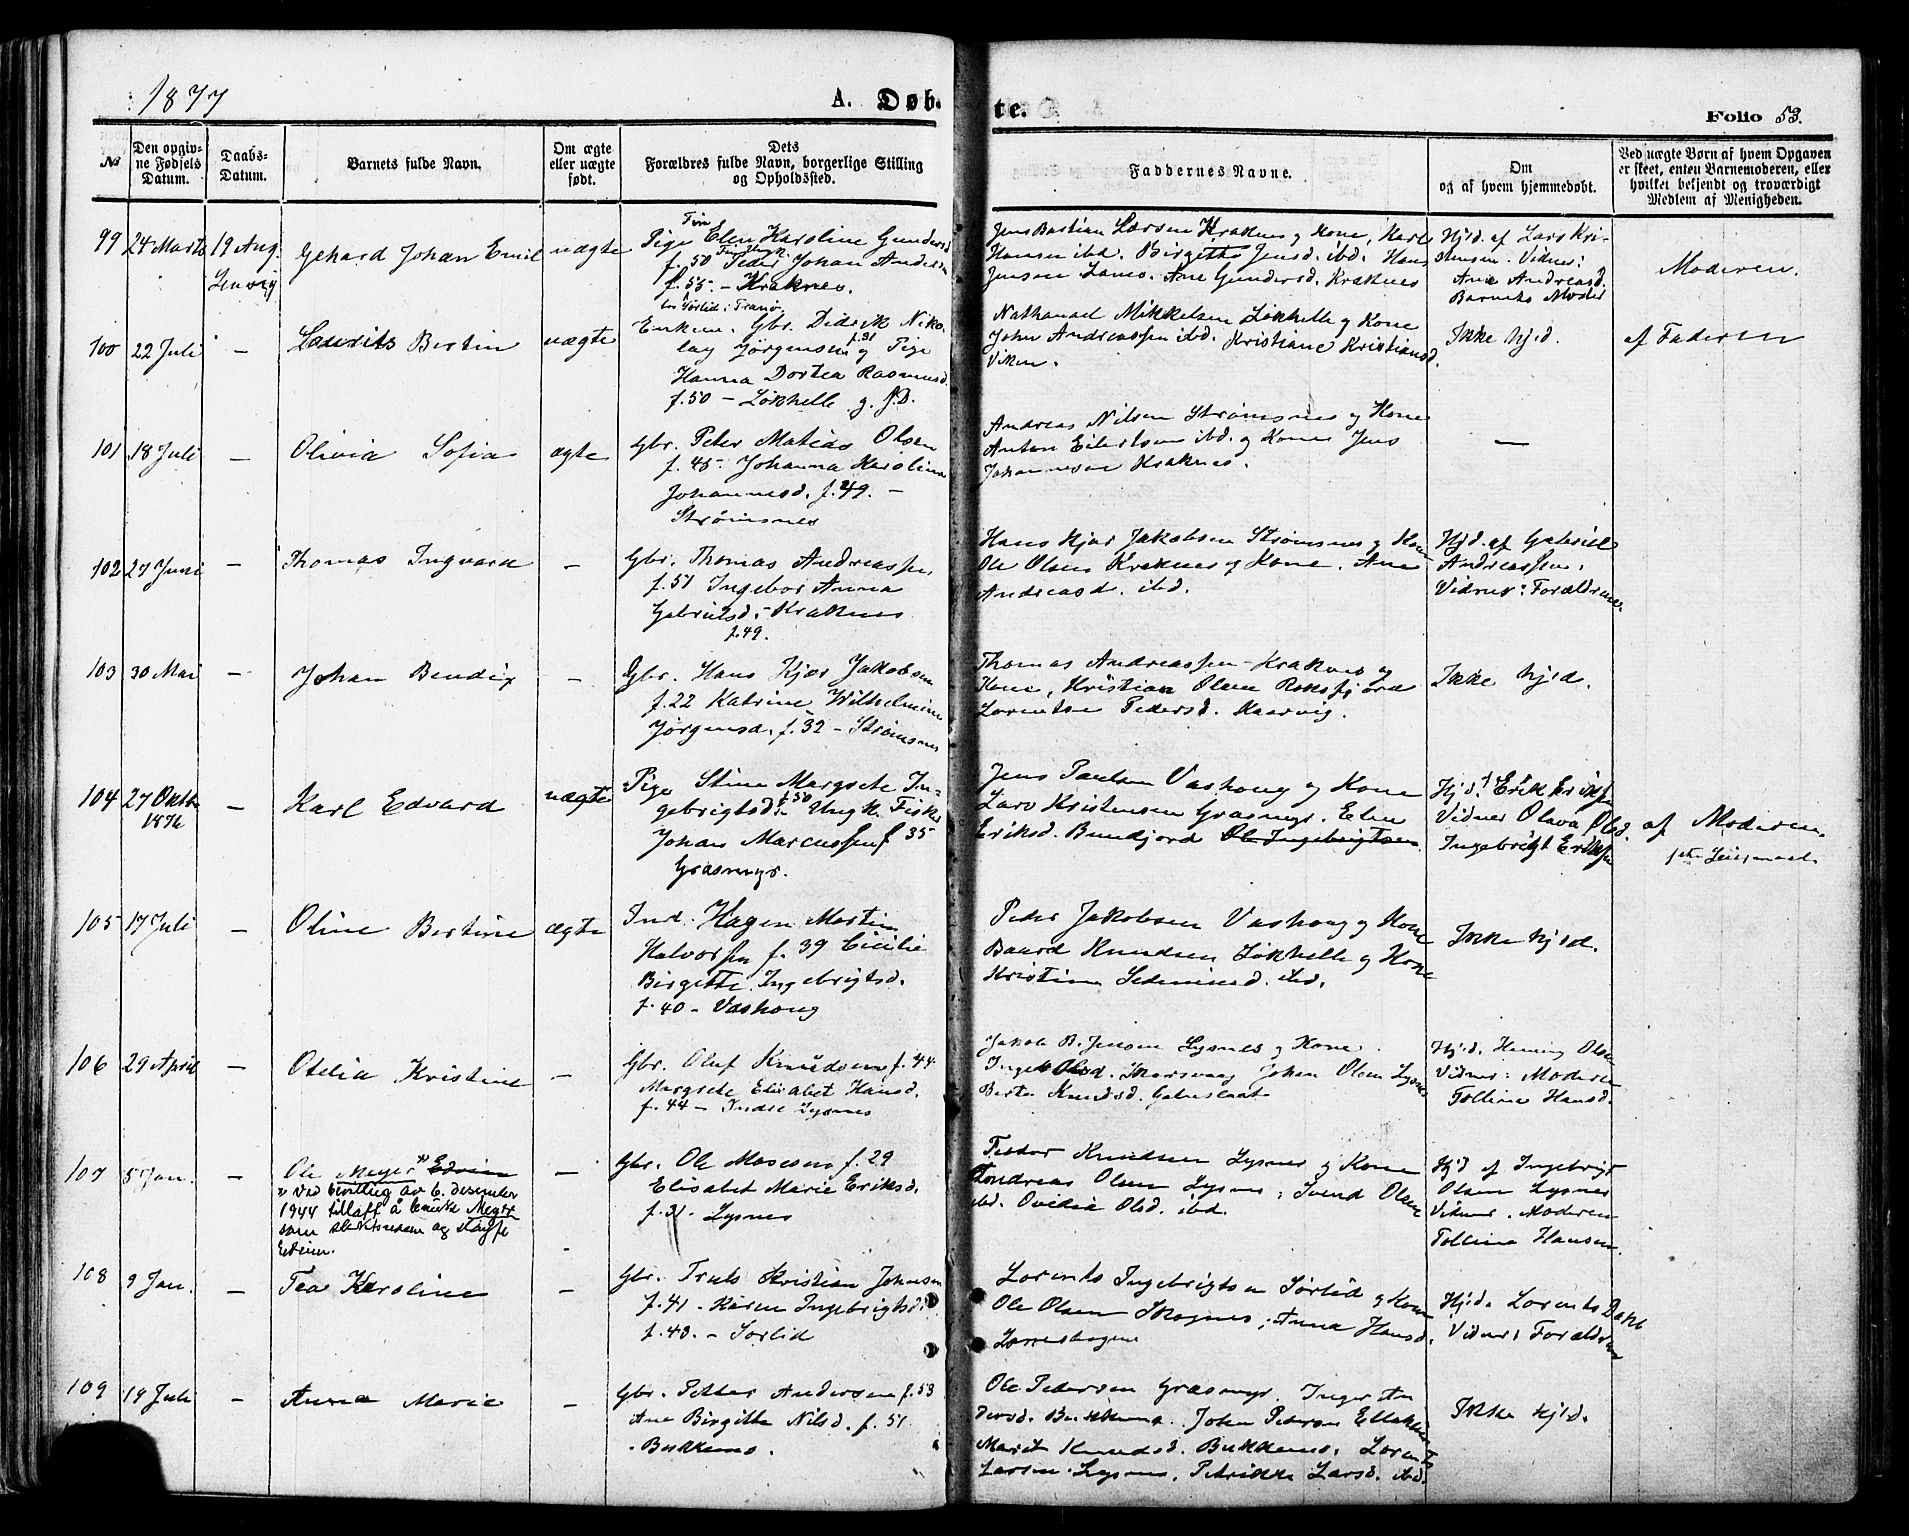 1877
A. Døbte.
Folio 53.
№
Den opgivne Fødsels Datum.
Daabs-Datum.
Barnets fulde Navn.
Om ægte eller uægte født.
Dets Forældres fulde Navn, borgerlige Stilling og Opholdssted.
Faddernes Navne.
Om og af hvem hjemmedøbt.
Ved uægte Børn af hvem Opgaven er skeet, enten Barnemoderen, eller hvilket bekjendt og troværdigt Medlem af Menigheden.
99 24 Marts 19 Aug. Lenvig
Gehard Johan Emil uægte
Pige Elen Karoline Gundersd
f. 50 Peder Johan Anders
f. 55 - Kraknes.
Jens Bastian Larsen Kraknes og Kone, Karl
Hansen ibd. Birgitte Jensd. ibd. Hans
Jensen Lanes. Ane Gundersd. Kraknes
Hjd. af Lars Kri-
stensen. Vidner:
Ane Andreasd.
Barnets Moder
Moderen.
100 22 Juli -
Laurits Bertin uægte
Enkem. Gbr. Didrik Niko-
lay Jørgensen f. 31 og Pige
Hanna Dortea Rasmusd.
f. 50 - Løkhelle g. f. D.
Nathanael Mikkelsen Løkhelle og Kone
John Andreassen ibd. Kristiane Kristiansd.
Viken.
Ikke hjd.
af Faderen
101 18 Juli -
Olivia Sofia ægte
Gbr. Peter Matias Olsen
f. 45 - Johanna Karolina
Johannesd. f. 49. -
Strømsnes
Andreas Nilsen Strømsnes og Kone
Anton Eilertsen ibd. og Kone Jens
Johannesen Kraknes.
-
102 27 Juni -
Thomas Ingvard -
Gbr. Thomas Andreassen
f. 51 Ingebor Anna
Gabrielsd. - Kraknes
f. 49.
Hans Kjær Jakobsen Strømsnes og Kone
Ole Olsen Kraknes og Kone. Ane
Andreasd. ibd.
Hjd. af Gabriel
Andreassen.
Vidner: Forældrene
103 30 Mai -
Johan Bendix -
Gbr. Hans Kjær Jakobsen
f. 22 Katrine Wilhelmine
Jørgensd. f. 32 - Strømsnes
Thomas Andreassen - Kraknes og
Kone, Kristian Olsen Roksfjord
Lorentse Pedersd. Kaarvig.
Ikke hjd.
104 27 Oktbr 1876 -
Karl Edvard uægte
Pige Stine Margrete In-
gebrigtsd. f. 50 Ungk. Fisker
Johan Marcussen f 35
Grasmyr.
Jens Paulsen Vashoug og Kone
Lars Kristensen Grasmyr. Elen
Eriksd. Bundjord Ole Ingebrigtsen
Hjd. Erik Eriksen
Vidner Olava Olsd.
Ingebrigt Eriksen
af Moderen
105 17 Juli -
Oline Bertine ægte
Ind. Hagen Martin
Halvorsen f. 39 Cicilie
Birgitte Ingebrigtsd.
f. 40 - Vashoug
Peder Jakobsen Vashoug og Kone
Baard Knudsen Løkhelle og Kone
Ikke hjd.
106 29 April -
Otelia Kristine -
Gbr. Oluf Knudsen f. 44
Margrete Elisabet Hansd.
f. 44 - Indre Lysnes
Jakob B. Jensen Lysnes og Kone.
Johan Olsen Lysnes
Hjd. Hening Olsen
Vidner: Moderen
Tolline Hansd.
107 5 Jan. -
Ole Meyer x) Edvin
x) Ved bevilling av 6. desember
1944 tillatt å bruke Meyer
som slektsnavn og sløyfe
Edvin.
-
Gbr. Ole Mosesen f. 29
Elisabet Marie Eriksd.
f. 31 - Lysnes
Peder Knudsen Lysnes og Kone
Andreas Olsen Lysnes; Svend Olsen
ibd. Ovidia Olsd. ibd.
Hjd af Ingebrigt
Olsen Lysnes
Vidner. Moderen
Tolline Hansen.
108 9 Jan. -
Tea Karoline -
Gbr. Truls Kristian Johnsen
f. 41 - Karen Ingebrigtsd.
f. 43. - Sørlid
Lorents Ingebrigtsen Sørlid og Kone
Ole Olsen Skognes; Anna Hansd.
Hjd. Lorents Dahl
Vidner: Forældrene
109 19 Juli -
Anna Marie -
Gbr. Petter Andersen f. 53
Ane Birgitte Nilsd. f. 51
- Bukkemo.
Ole Pedersen Grasmyr. Inger An
dersd. Bukkemo. Johan Pedersen
Marit Knudsd. Bukkemo. Lorents
Larsen Lysnes, Petrikke Larsd. ibd.
Ikke hjd.